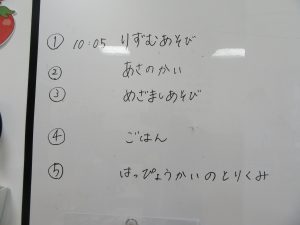 ① 10:05 りずむあそび
② あさのかい
③ めざましあそび
④ ごはん
⑤ はっぴょうかいのとりくみ